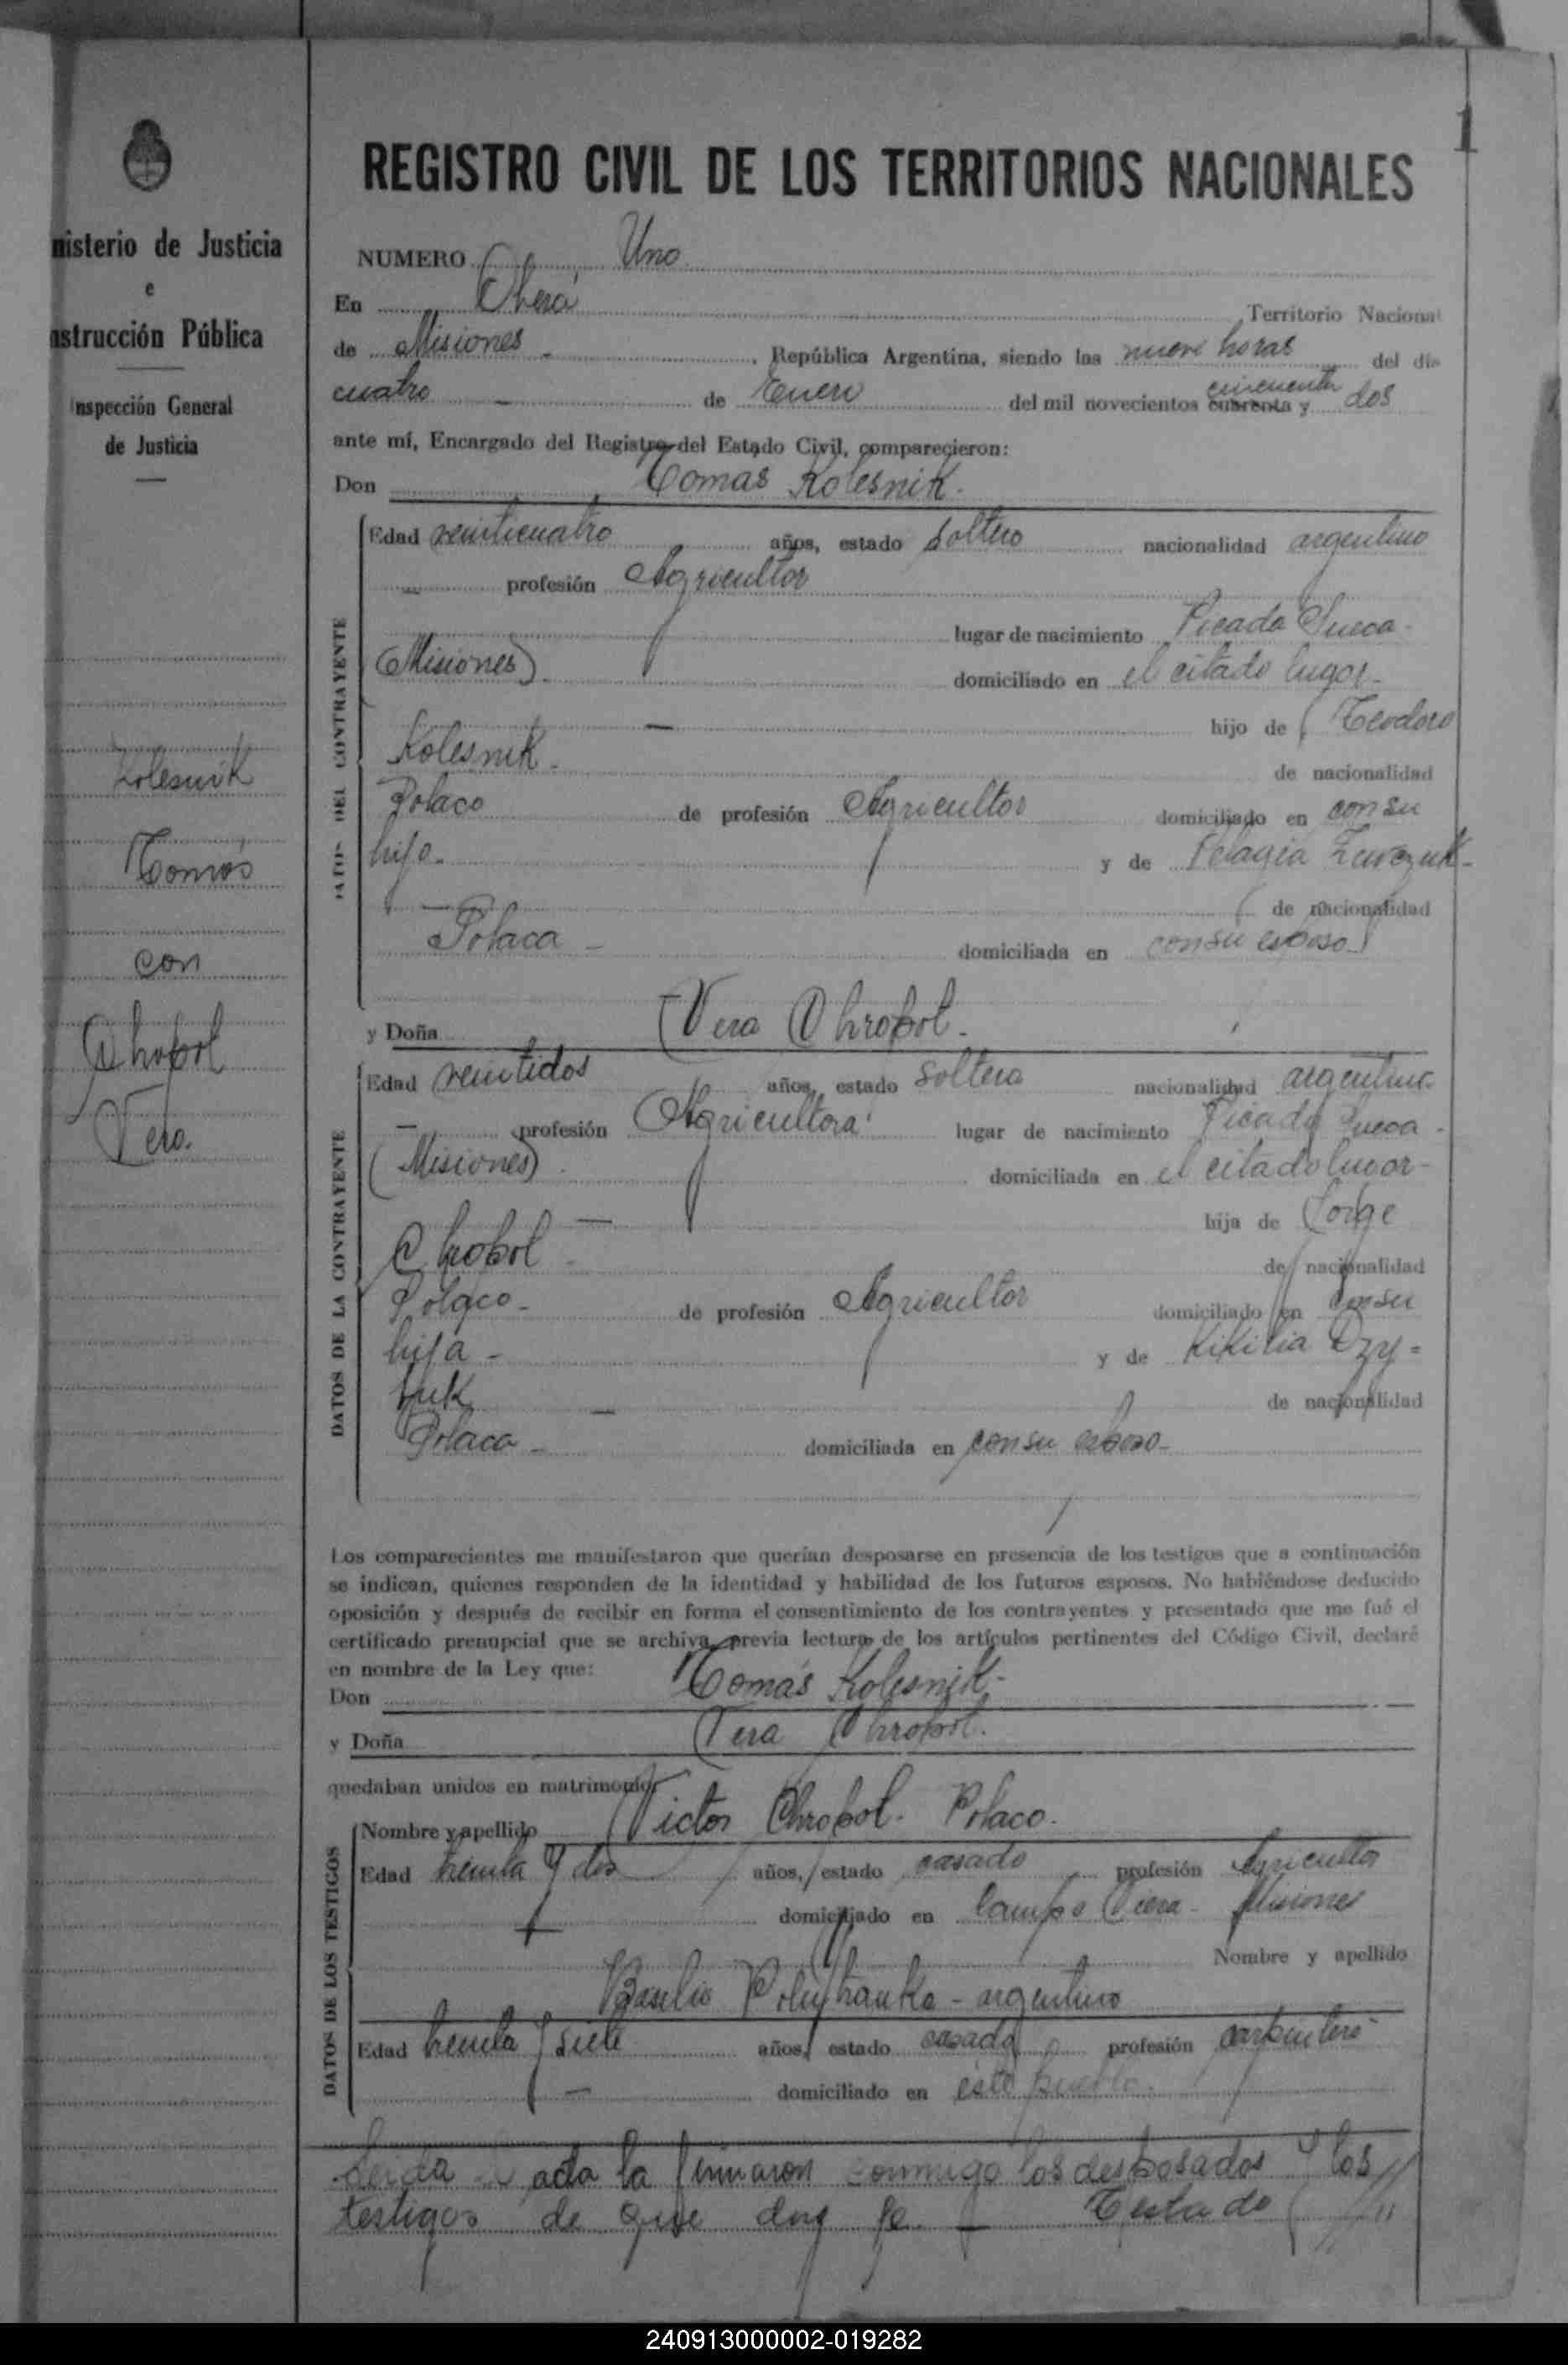 1
nisterio de Justicia
e
nstrucción Pública
Inspección General
de Justicia
Kolesnik
Tomás
con
Chrapol
Vera.
REGISTRO CIVIL DE LOS TERRITORIOS NACIONALES
NUMERO Uno
En Oberá Territorio Nacional
de Misiones - , República Argentina, siendo las nueve horas del día
cuatro - de Enero del mil novecientos cuarenta y cincuenta dos
ante mí, Encargado del Registro del Estado Civil, comparecieron:
Don Tomás Kolesnik.
DATOS DEL CONTRAYENTE
Edad veinticuatro años, estado soltero nacionalidad argentino
profesión Agricultor
lugar de nacimiento Picada Sueca -
(Misiones). domiciliado en el citado lugar -
hijo de Teodoro
Kolesnik - de nacionalidad
Polaco de profesión Agricultor domiciliado en con su
hijo - y de Pelagia
de nacionalidad
Polaca - domiciliada en con su esposo
y Doña Vera Chrapol.
DATOS DE LA CONTRAYENTE
Edad veintidos años, estado soltera nacionalidad argentina
- profesión Agricultora lugar de nacimiento Picada Sueca -
(Misiones) domiciliada en el citado lugar -
hija de Jorge
Chrapol - de nacionalidad
Polaco - de profesión Agricultor domiciliado en con su
hija - y de Kikilia Dzy =
buk - de nacionalidad
Polaca - domiciliada en con su esposo -
Los comparecientes me manifestaron que querían desposarse en presencia de los testigos que a continuación
se indican, quienes responden de la identidad y habilidad de los futuros esposos. No habiéndose deducido
oposición y después de recibir en forma el consentimiento de los contrayentes y presentado que me fué el
certificado prenupcial que se archiva, previa lectura de los artículos pertinentes del Código Civil, declaré
en nombre de la Ley que:
Don Tomás Kolesnik -
y Doña Vera Chrapol.
quedaban unidos en matrimonio
DATOS DE LOS TESTIGOS
Nombre y apellido Victor Chrapol. Polaco.
Edad treinta y dos años, estado casado profesión Agricultor
domiciliado en Campo Viera - Misiones
Nombre y apellido
Basilio - argentino
Edad treinta y siete años, estado casado profesión carpintero -
domiciliado en este pueblo.
Leida acta la firmaron conmigo los desposados y los
testigos de que doy fe. - Testado
240913000002-019282